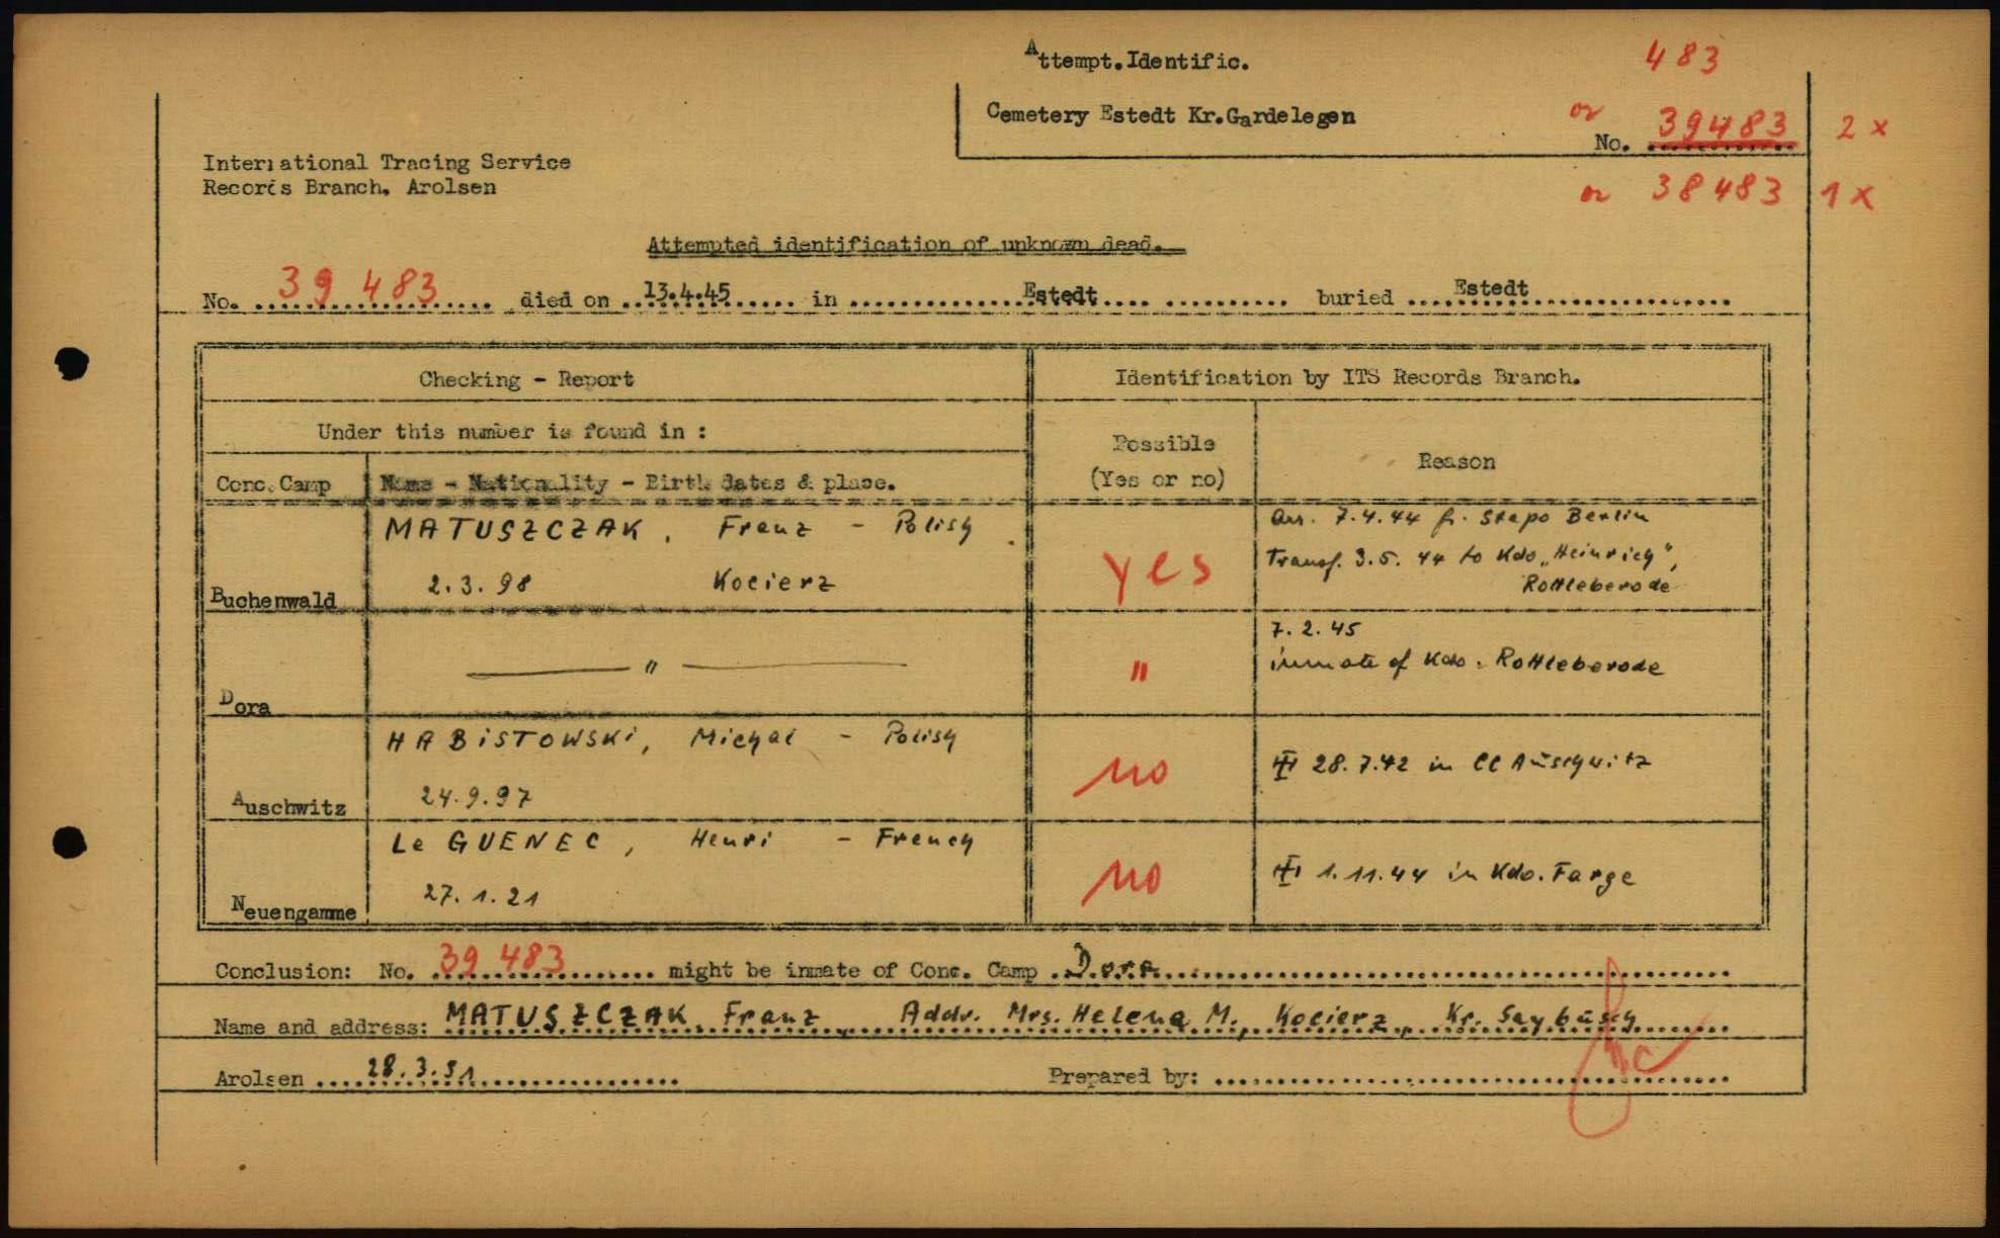 Attempt.Identific.
483
Cemetery Estedt Kr.Gardelegen
or
No. 39483 2 x
or 38483 1 x
International Tracing Service
Records Branch, Arolsen
Attempted identification of unknown dead.
No. 39 483 died on 13.4.45 in Estedt buried Estedt
Checking - Report
Identification by ITS Records Branch.
Under this number is found in :
Possible
(Yes or no)
Reason
Conc. Camp
Name - Nationality - Birth dates & place.
MATUSZCZAK, Franz - Polish
2.3.98 Kocierz
Buchenwald
yes
arr. 7.4.44 fr. Stapo Berlin
Transf. 3.5.44 to Kdo. „Heinrich",
Rottleberode
Dora
— " —
"
7.2.45
inmate of Kdo. Rottleberode
HABISTOWSKI, Michal - Polish
24.9.97
Auschwitz
no
28.7.42 in CC Auschwitz
Le GUENEC, Henri - French
27.1.21
Neuengamme
no
1.11.44 in Kdo. Farge
Conclusion: No. 39 483 might be inmate of Conc. Camp Dora
Name and address: MATUSZCZAK Franz, Addr. Mrs. Helena M., Kocierz, Kr. Saybusch
Arolsen 28.3.51
Prepared by: